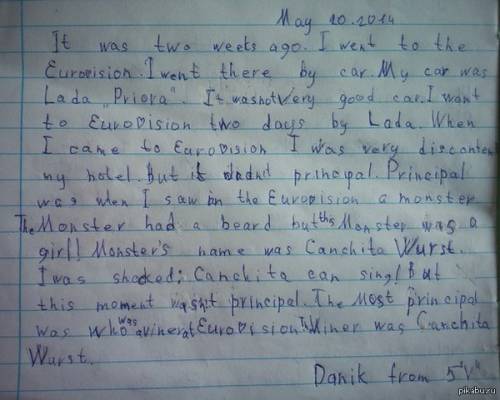 May 20.2014
It was two weeks ago. I went to the
Eurovision. I went there by car. My car was
Lada "Priora". It was not very good car. I want
to Eurovision two days by Lada. When
I came to Eurovision I was very disconten
my hotel. But it principal. Principal
was when I saw on the Eurovision a monster
The Monster had a beard but this Monster was a
girl! Monster's name was Canchita Wurst.
I was shocked; Canchita can sing! But
this moment wasn't principal. The Most principal
was who was a viner at Eurovision The Winer was Canchita
Wurst.
Danik from 5"V"
pikabu.ru